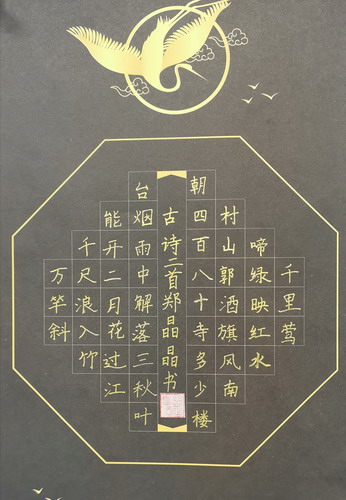 千里莺
啼绿映红水
村山郭酒旗风南
朝四百八十寺多少楼
古诗二首郑晶晶书
台烟雨中解落三秋叶
能开二月花过江
千尺浪入竹
万竿斜